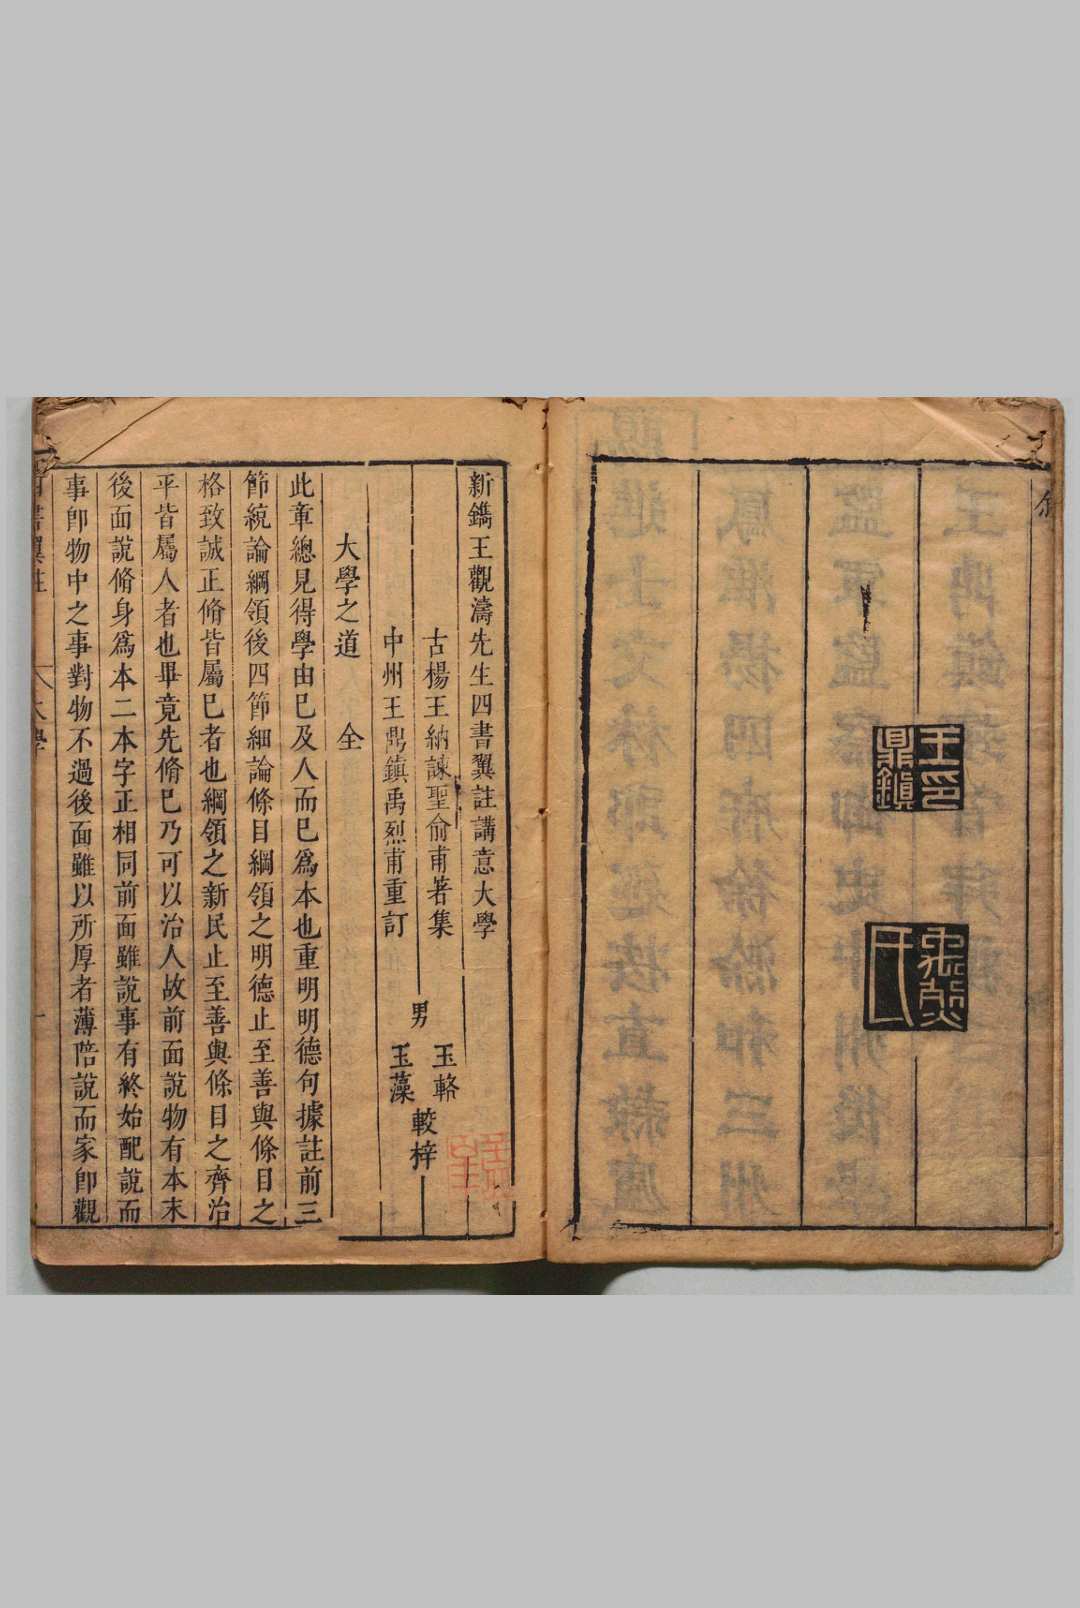 王鼎鎮印
新鐫王觀濤先生四書翼註講意大學
古楊王納諫聖俞甫著集
中州王鼎鎮禹烈甫重訂
男
玉輅
玉藻
較梓
大學之道 全
此章總見得學由已及人而已為本也重明明德句據註前三
節統論綱領後四節細論條目綱領之明德止至善與條目之
格致誠正脩皆屬已者也綱領之新民止至善與條目之齊治
平皆屬人者也畢竟先脩已乃可以治人故前面說物有本末
後面說脩身為本二本字正相同前面雖說事有終始配說而
事卽物中之事對物不過後面雖以所厚者薄陪說而家卽觀
四書翼註 大學 一